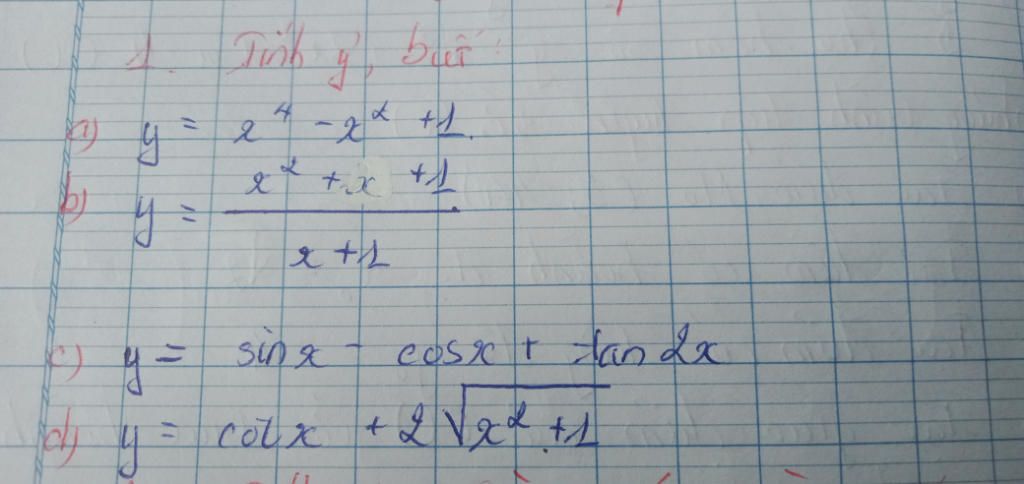 1. Tính y', biết:
a) y = x⁴ - x² + 1.
b) y = (x² + x + 1) / (x + 1)
c) y = sin x - cos x + tan 2x
d) y = cot x + 2√(x² + 1)